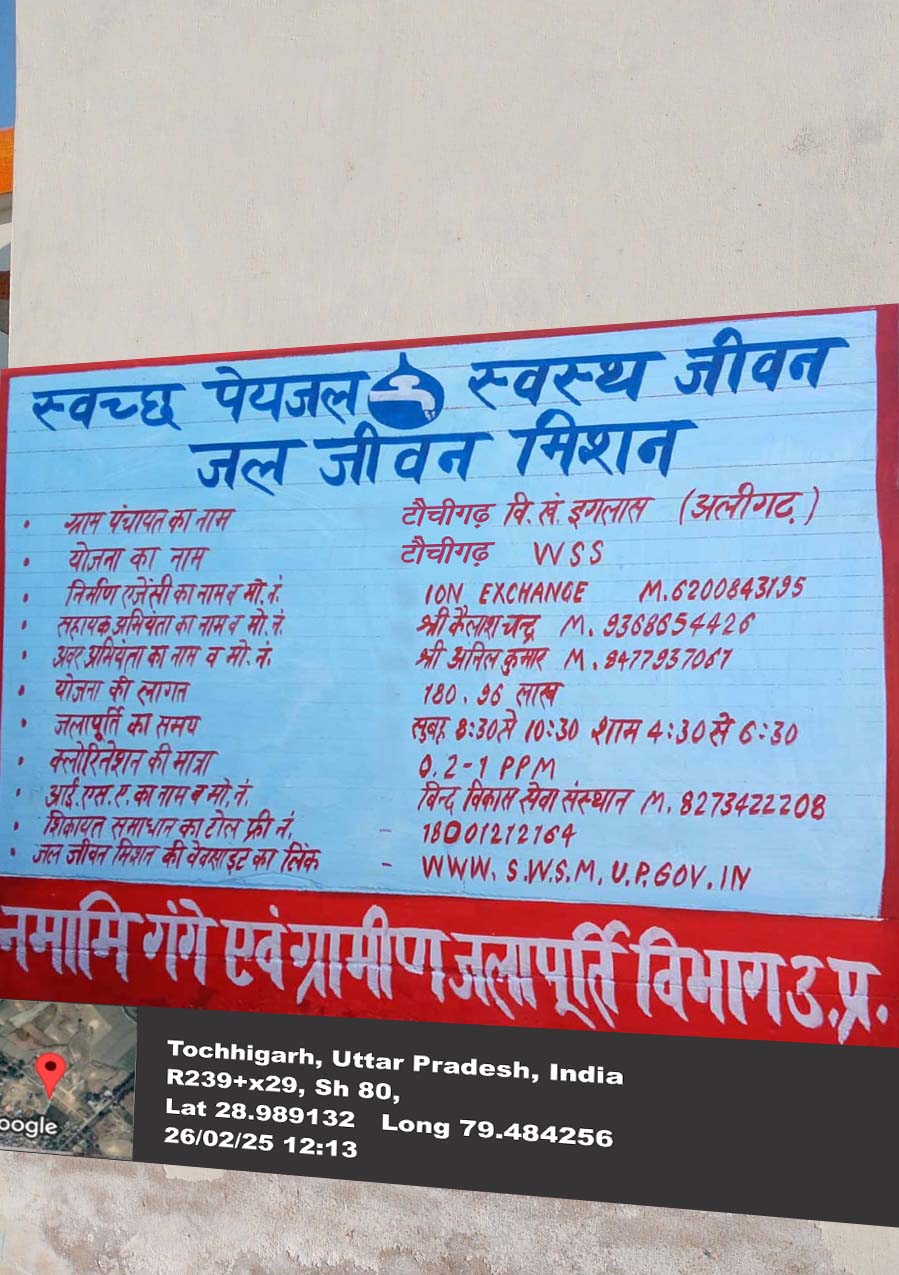 स्वच्छ पेयजल स्वस्थ जीवन
जल जीवन मिशन
• ग्राम पंचायत का नाम टौचीगढ़ वि. खं. इगलास (अलीगढ़)
• योजना का नाम टौचीगढ़ WSS
• निर्माण एजेंसी का नाम व मो. नं. ION EXCHANGE M. 6200843195
• सहायक अभियंता का नाम व मो. नं. श्री कैलाश चन्द्र M. 9368654426
• अवर अभियंता का नाम व मो. नं. श्री अनिल कुमार M. 8477937067
• योजना की लागत 180.96 लाख
• जलापूर्ति का समय सुबह 8:30 से 10:30 शाम 4:30 से 6:30
• क्लोरिनेशन की मात्रा 0.2-1 PPM
• आई.एस.ए. का नाम व मो. नं. बिन्द विकास सेवा संस्थान M. 8273422208
• शिकायत समाधान का टोल फ्री नं. - 18001212164
• जल जीवन मिशन की वेवसाइट का लिंक - WWW.S.W.S.M.U.P.GOV.IN
नमामि गंगे एवं ग्रामीण जलापूर्ति विभाग उ.प्र.
oogle
Tochhigarh, Uttar Pradesh, India
R239+x29, Sh 80,
Lat 28.989132 Long 79.484256
26/02/25 12:13